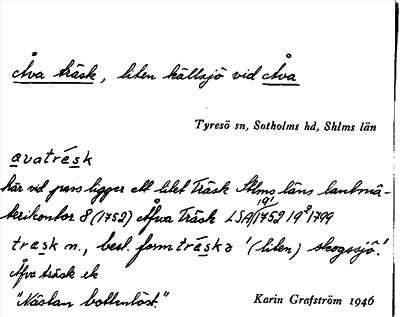 Åva träsk, liten källsjö vid Åva
Tyresö sn, Sotholms hd, Shlms län
avaträsk
här vid pass ligger ett litet Träsk Sthms läns lantmä-
terikontor 8 (1752) Åfva Träsk LSA 19¹/1752 19⁸ 1799
träsk n., best. form träska '(liten) skogssjö'.
Åfva träsk ek
"Nästan bottenlöst."
Karin Grafström 1946